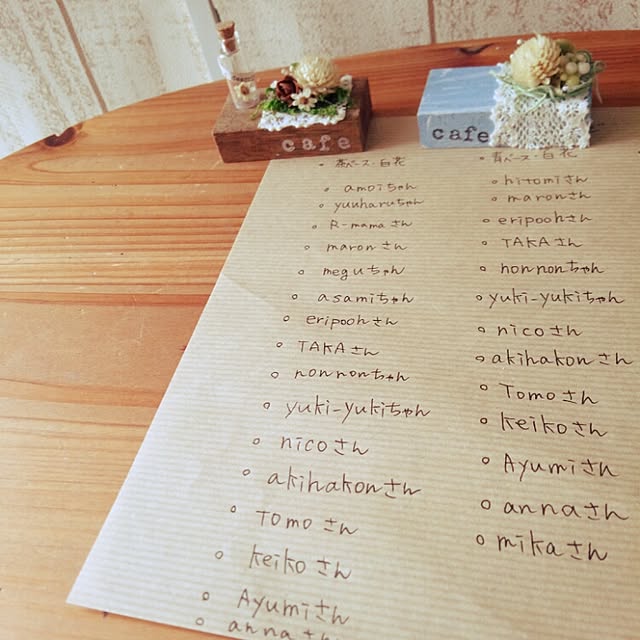 cafe
cafe
茶ベース・白花
amoiちゃん
yuuharuちゃん
R-mamaさん
maronさん
meguちゃん
asamiちゃん
eripoohさん
TAKAさん
nonnonちゃん
yuki-yukiちゃん
nicoさん
akihakonさん
Tomoさん
keikoさん
Ayumiさん
annaさん
青ベース・白花
hitomiさん
maronさん
eripoohさん
TAKAさん
nonnonちゃん
yuki-yukiちゃん
nicoさん
akihakonさん
Tomoさん
keikoさん
Ayumiさん
annaさん
mikaさん